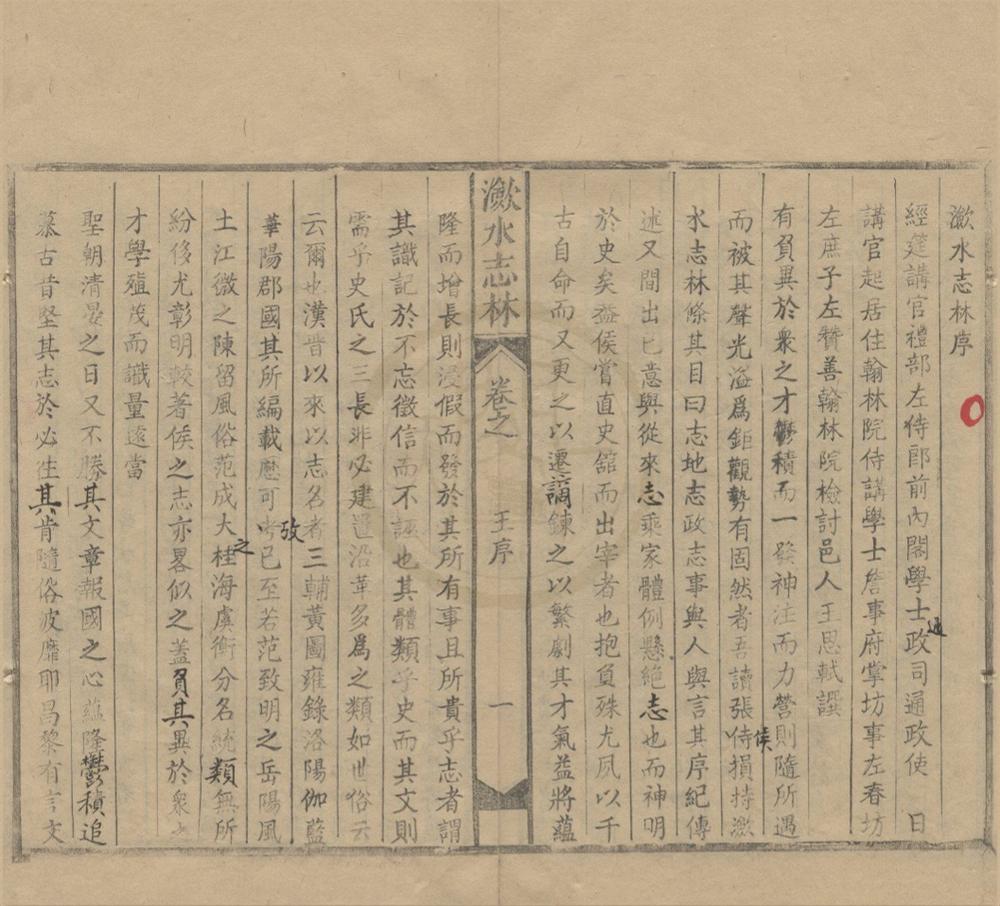 瀫水志林序
經筵講官禮部左侍郎前內閣學士通政司通政使 日
講官起居住翰林院侍講學士詹事府掌坊事左春坊
左庶子左贊善翰林院檢討邑人王思軾譔
有負異於衆之才鬱積而一發神注而力營則隨所遇
而被其聲光溢爲鉅觀勢有固然者吾讀張侍侯損持瀫
水志林條其目曰志地志政志事與人與言其序紀傳
述又間出已意與從來志乘家體例懸絕志也而神明
於史矣益侯嘗直史舘而出宰者也抱負殊尤夙以千
古自命而又更之以遷謫鍊之以繁劇其才氣益將蘊
瀫水志林 卷之 王序 一
隆而增長則浸假而發於其所有事且所貴乎志者謂
其識記於不忘徵信而不誣也其體類乎史而其文則
需乎史氏之三長非必建置沿革多爲之類如世俗云
云爾也漢晋以來以志名者三輔黃圖雍錄洛陽伽藍
華陽郡國其所編載歷可考攷已至若范致明之岳陽風
土江微之陳留風俗范成大之桂海虞衡分名統類無所
紛侈尤彰明較著侯之志亦畧似之蓋負其異於衆之
才學殖茂而識量遠當
聖朝清晏之日又不勝其文章報國之心蘊隆鬱積追
慕古昔堅其志於必往其肯隨俗披靡耶昌黎有言文